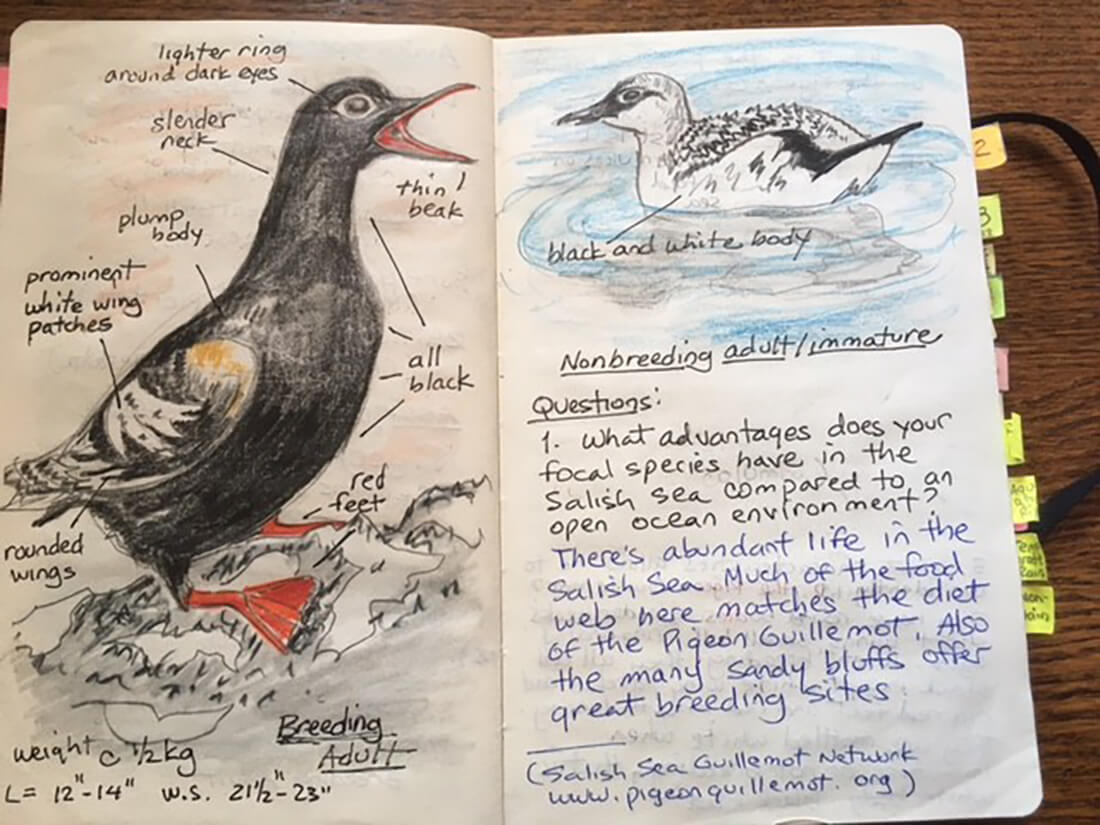 lighter ring
around dark eyes
slender
neck
thin
beak
plump
body
prominent
white wing
patches
all
black
red
feet
rounded
wings
Breeding
Adult
weight c 1/2 kg
L= 12"-14" w.s. 21 1/2"-23"
black and white body
Nonbreeding adult/immature
Questions:
1. What advantages does your
focal species have in the
Salish Sea compared to an
open ocean environment?
There's abundant life in the
Salish Sea. Much of the food
web here matches the diet
of the Pigeon Guillemot. Also
the many sandy bluffs offer
great breeding sites
(Salish Sea Guillemot Network
www.pigeonguillemot.org)
2
3